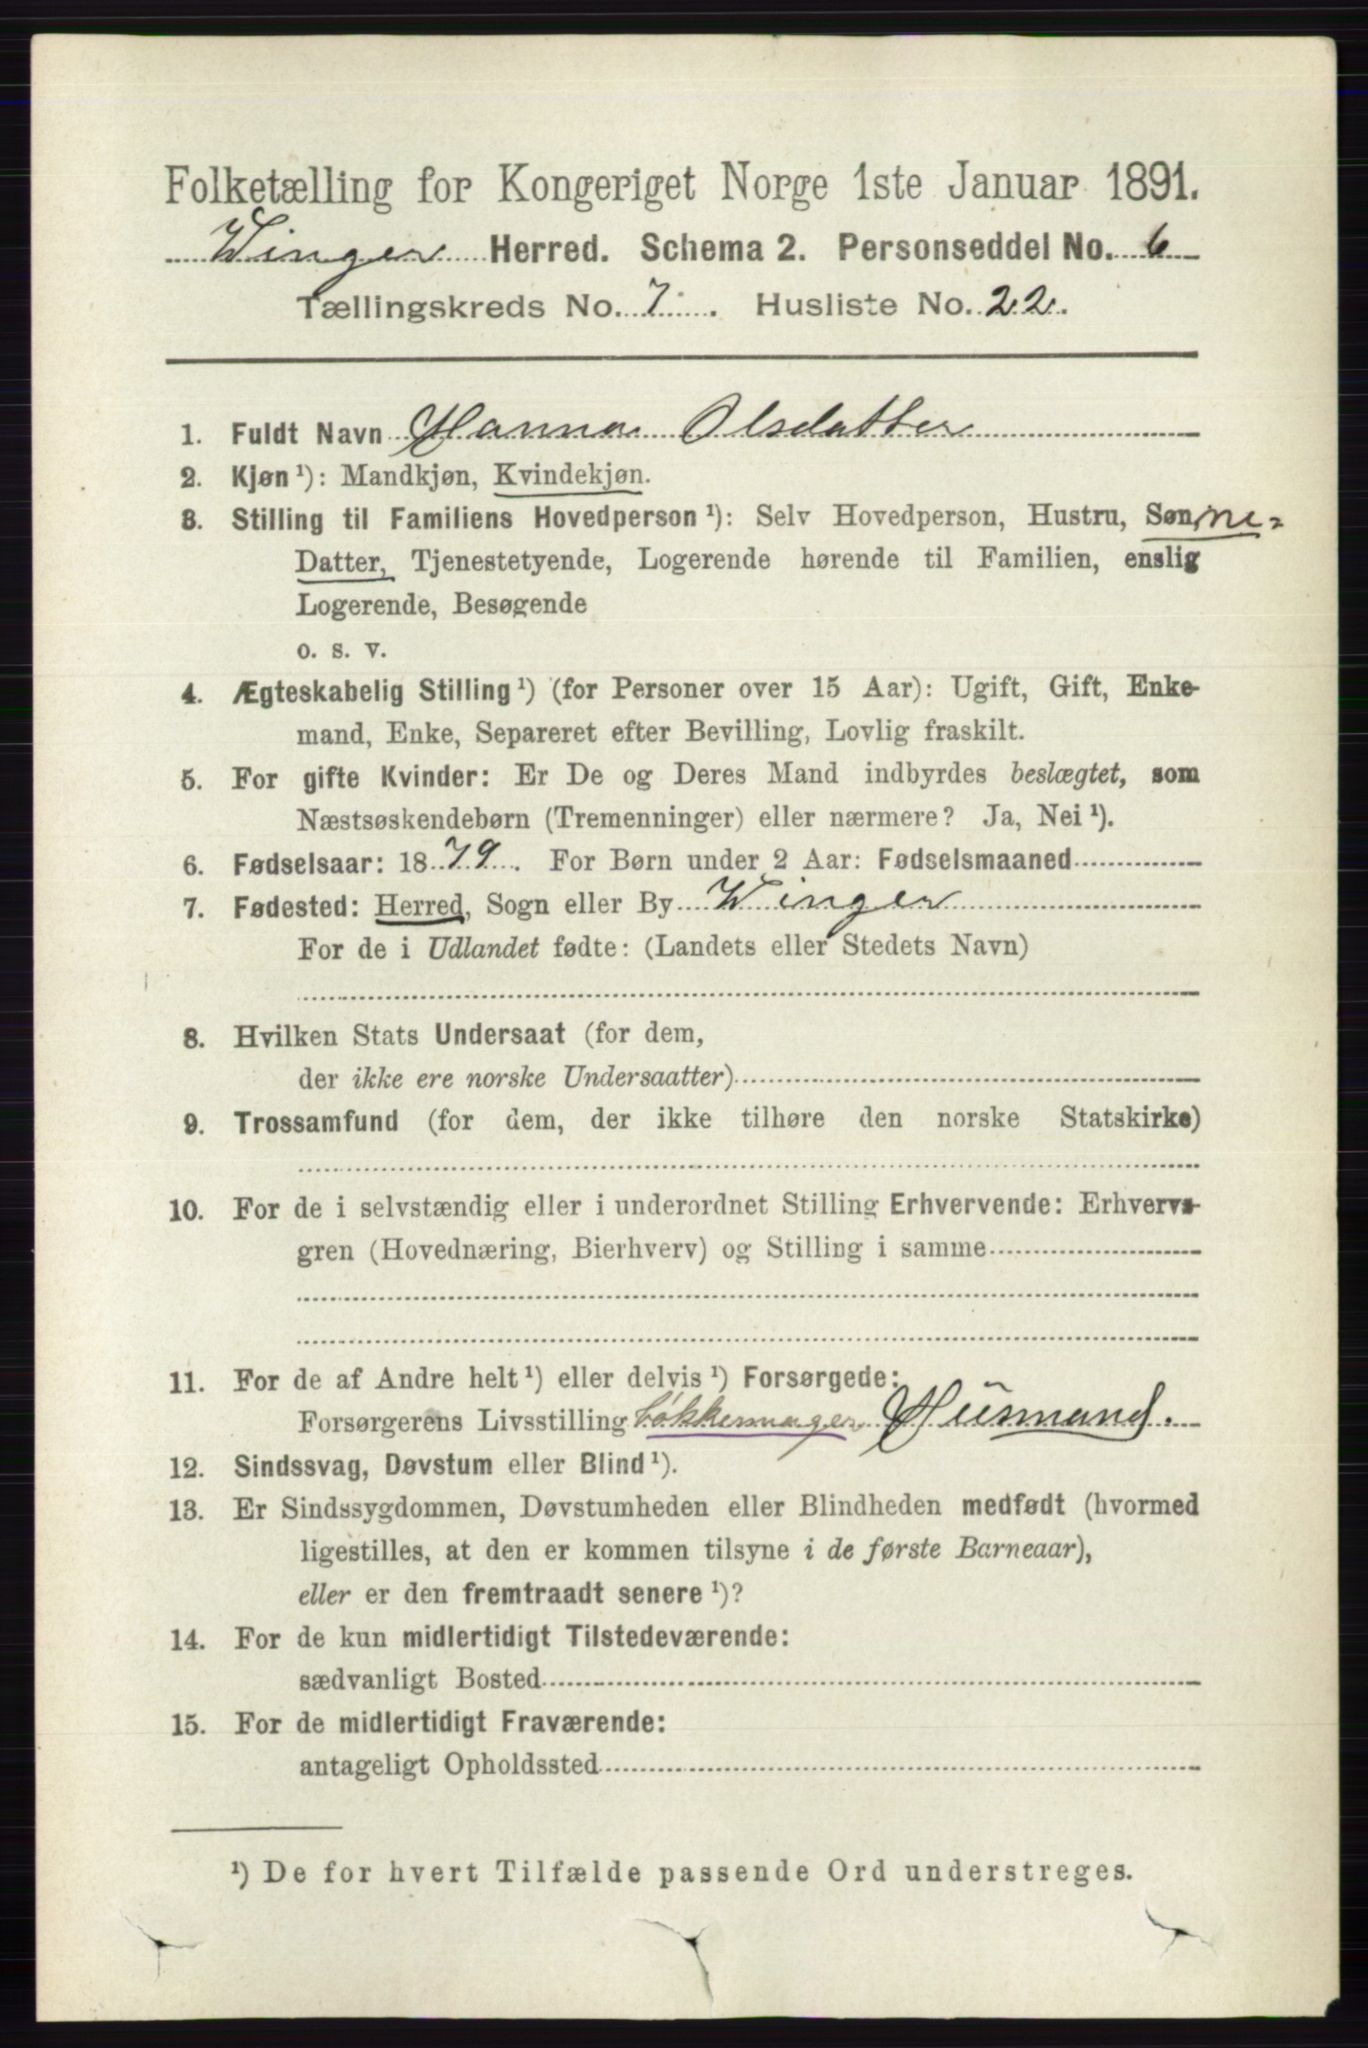 Folketælling for Kongeriget Norge 1ste Januar 1891.
Winger Herred. Schema 2. Personseddel No. 6
Tællingskreds No. 7. Husliste No. 22.
1. Fuldt Navn Hanna Olsdatter
2. Kjøn ¹): Mandkjøn, Kvindekjøn.
3. Stilling til Familiens Hovedperson ¹): Selv Hovedperson, Hustru, Sønne-
Datter, Tjenestetyende, Logerende hørende til Familien, enslig
Logerende, Besøgende
o. s. v.
4. Ægteskabelig Stilling ¹) (for Personer over 15 Aar): Ugift, Gift, Enke-
mand, Enke, Separeret efter Bevilling, Lovlig fraskilt.
5. For gifte Kvinder: Er De og Deres Mand indbyrdes beslægtet, som
Næstsøskendebørn (Tremenninger) eller nærmere? Ja, Nei ¹).
6. Fødselsaar: 1879. For Børn under 2 Aar: Fødselsmaaned
7. Fødested: Herred, Sogn eller By Winger
For de i Udlandet fødte: (Landets eller Stedets Navn)
8. Hvilken Stats Undersaat (for dem,
der ikke ere norske Undersaatter)
9. Trossamfund (for dem, der ikke tilhøre den norske Statskirke)
10. For de i selvstændig eller i underordnet Stilling Erhvervende: Erhvervs-
gren (Hovednæring, Bierhverv) og Stilling i samme
11. For de af Andre helt ¹) eller delvis ¹) Forsørgede:
Forsørgerens Livsstilling Løkkemager Husmand.
12. Sindssvag, Døvstum eller Blind ¹).
13. Er Sindssygdommen, Døvstumheden eller Blindheden medfødt (hvormed
ligestilles, at den er kommen tilsyne i de første Barneaar),
eller er den fremtraadt senere ¹)?
14. For de kun midlertidigt Tilstedeværende:
sædvanligt Bosted
15. For de midlertidigt Fraværende:
antageligt Opholdssted
¹) De for hvert Tilfælde passende Ord understreges.